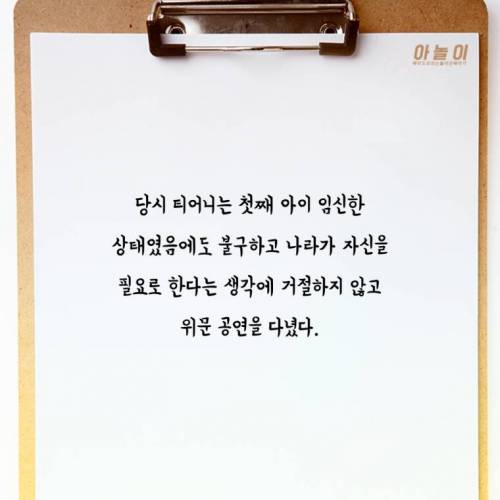 아놀이
당시 티어니는 첫째 아이 임신한
상태였음에도 불구하고 나라가 자신을
필요로 한다는 생각에 거절하지 않고
위문 공연을 다녔다.